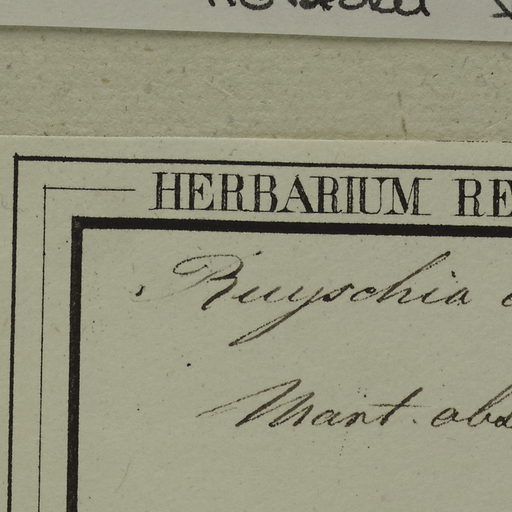 HERBARIUM RE
Ruyschia
Mant. obs